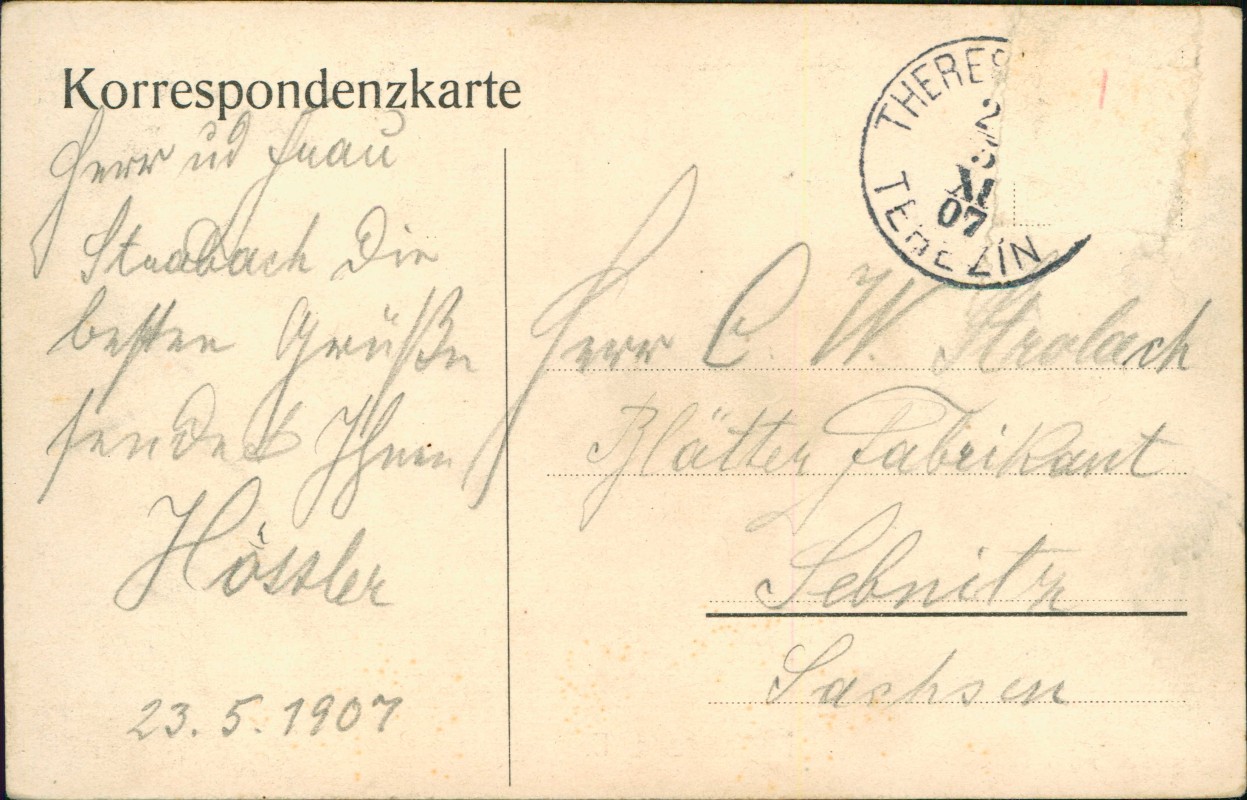 Korrespondenzkarte
Herr ud Frau
Strobach die
besten Grüße
sendet Ihnen
Hössler
23.5.1907
THERES
2
XI
07
TEREZÍN
Herr C. W. Strobach
Blätter Fabrikant
Sebnitz
Sachsen